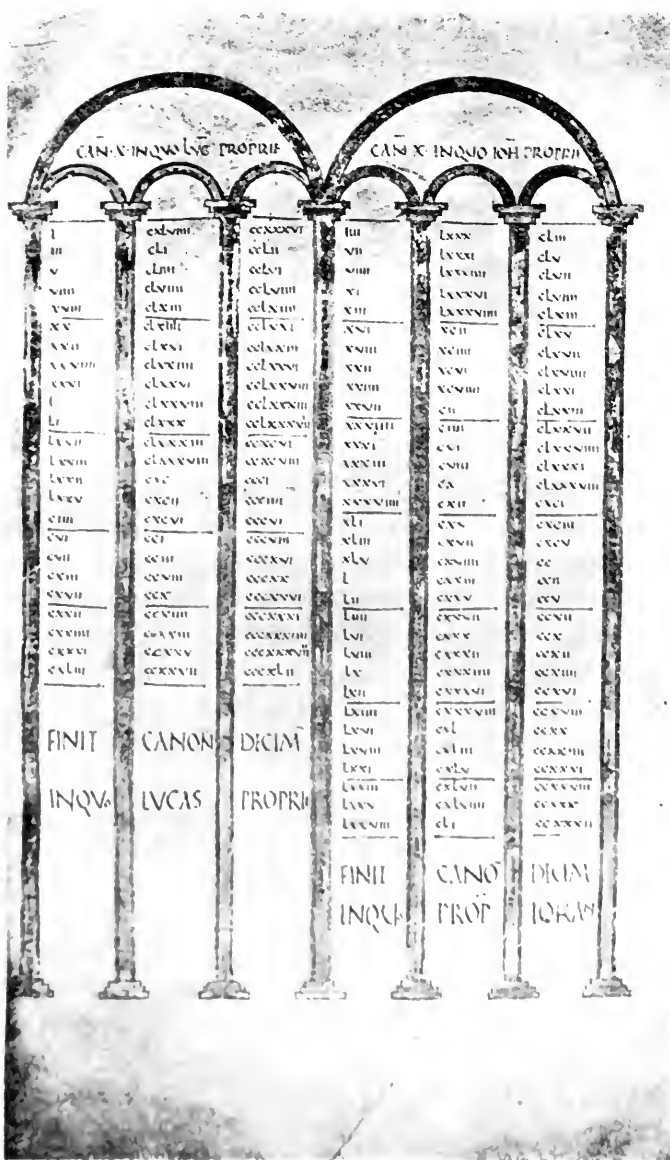 CAN̄·X·INQVO LVC̄ PROPRIE
i
iii
v
viiii
xviii
xx
xxii
xxviiii
xxxi
l
li
lxvii
lxviii
lxxii
lxxv
ciiii
cvi
cvii
cxiii
cxvii
cxxii
cxxiiii
cxxxi
cxliii
cxlviiii
cli
cliiii
clviiii
clxiii
clxiiii
clxvi
clxxiiii
clxxvi
clxxviiii
clxxx
clxxxiii
clxxxviiii
cxc
cxcii
cxcvi
cci
cciii
ccviii
ccx
ccxiiii
ccxxiii
ccxxv
ccxxvii
ccxxxvi
cclii
cclvi
cclviiii
cclxiiii
cclxxi
cclxxiii
cclxxvi
cclxxviii
cclxxxiii
cclxxxvii
ccxcvi
ccxcviii
ccci
ccciiii
cccvi
cccviii
cccxvi
cccxx
cccxxvi
cccxxxi
cccxxxiiii
cccxxxvii
cccxlii
FINIT CANON DICIM̄
INQVo LVCAS PROPRIE
CAN̄ X· INQVO IOH̄ PROPRIE
iiii
vii
viiii
xi
xiii
xvi
xviii
xxii
xxiiii
xxvii
xxviiii
xxxi
xxxiii
xxxvi
xxxviiii
xli
xliii
xlv
l
lii
liiii
lvi
lviii
lx
lxii
lxiiii
lxvi
lxviii
lxxi
lxxiii
lxxv
lxxviii
lxxx
lxxxi
lxxxiiii
lxxxvi
lxxxviiii
xcii
xciiii
xcvi
xcviiii
cii
ciiii
cvi
cviii
cx
cxii
cxv
cxvii
cxviiii
cxxiii
cxxv
cxxvii
cxxx
cxxxii
cxxxiiii
cxxxvi
cxxxviii
cxl
cxliii
cxlv
cxlvii
cxlviiii
cli
cliii
clv
clvii
clviiii
clxiii
clxv
clxvii
clxviiii
clxxi
clxxiii
clxxvii
clxxviiii
clxxxi
clxxxviii
cxci
cxciii
cxcv
cc
ccii
ccv
ccvii
ccx
ccxii
ccxiiii
ccxvi
ccxviii
ccxx
ccxxiii
ccxxvi
ccxxviii
ccxxx
ccxxxii
FINIT CANO̅ DICIM
PROP̄ IOHAN